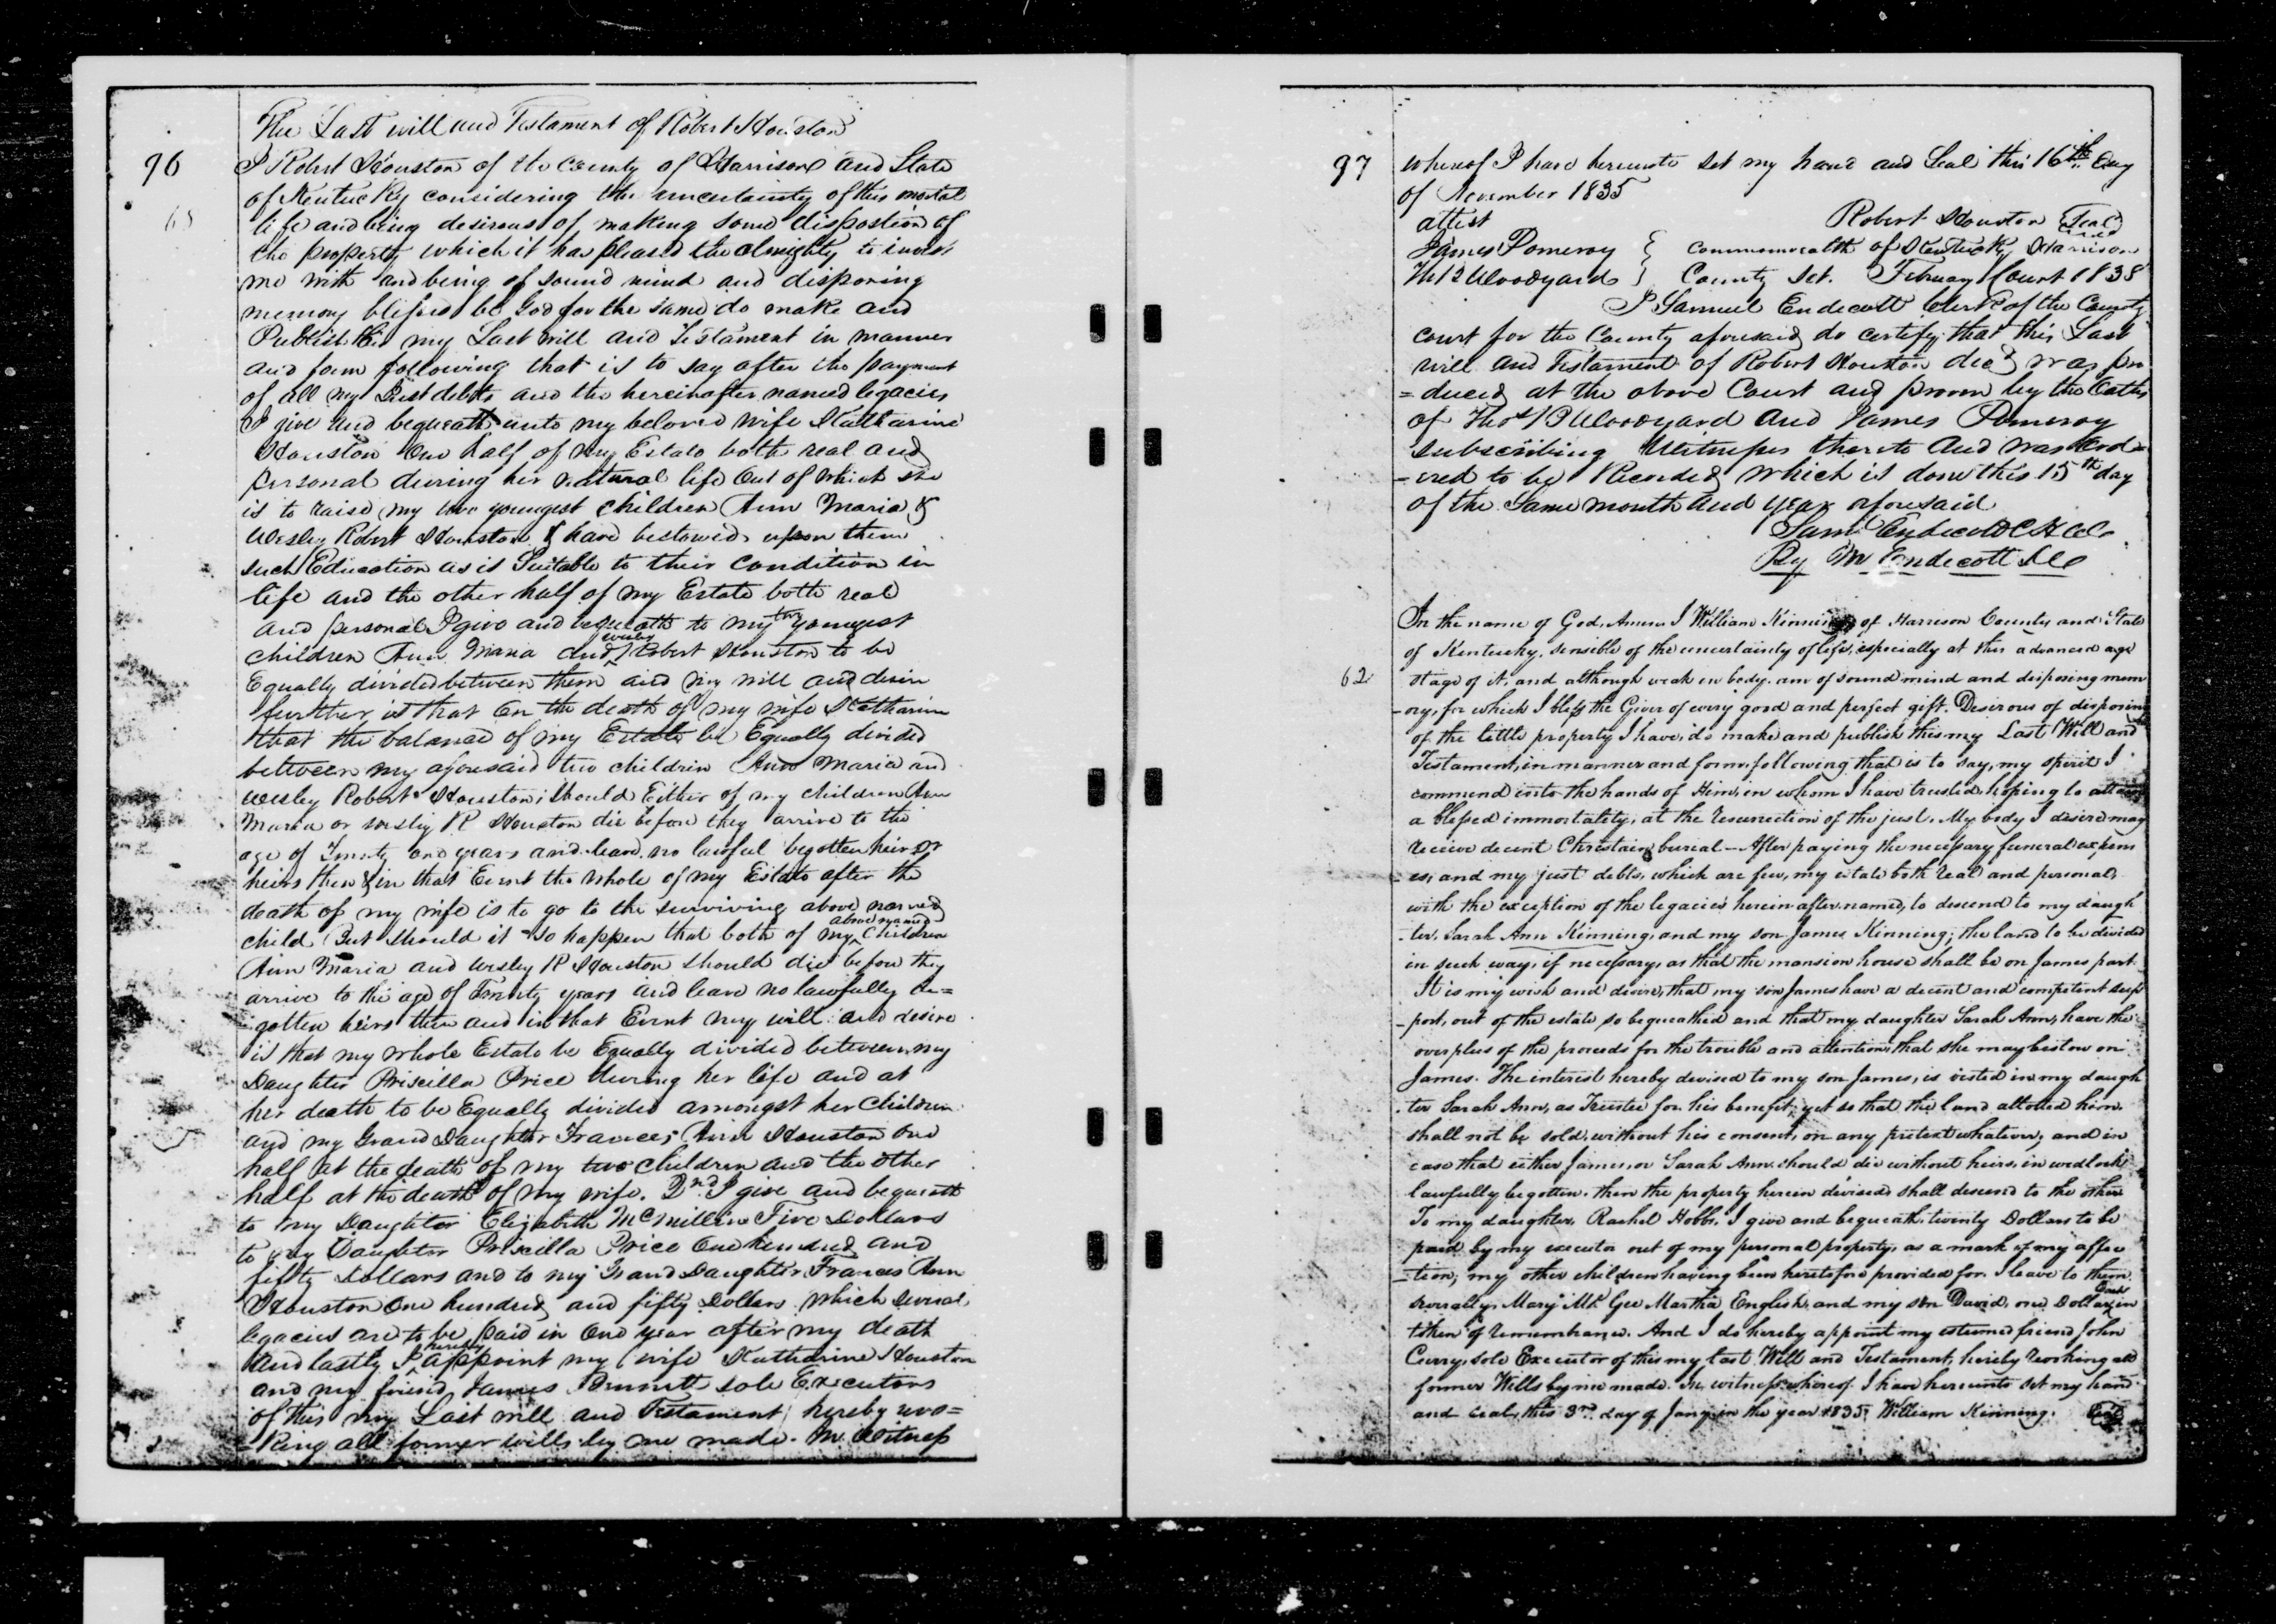 The Last will and Testament of Robert Houston
96
I Robert Houston of the County of Harrison and State
of Kentucky considering the uncertainty of this mortal
life and being desirous of making some dispostion of
the property which it has pleased the almighty to invest
me with and being of sound mind and disposing
memory blessed be God for the same do make and
Publish this my Last will and Testament in manner
and form following that is to say after the payment
of all my Just debts and the hereinafter named legacies
I give and bequeath unto my beloved wife Katharine
Houston One half of my Estate both real and
personal during her natural life Out of which she
is to raise my two youngest children Ann Maria &
Wesley Robert Houston & have bestowed upon them
such Education as is Suitable to their Condition in
life and the other half of my Estate both real
and personal I give and bequeath to my two youngest
children Ann Maria and Wesley Robert Houston to be
Equally divided between them and my will and desire
further is that On the death of my wife Katharine
that the balance of my Estate be Equally divided
between my aforesaid two children Ann Maria and
Wesley Robert Houston; Should Either of my children Ann
Maria or Wesley R Houston die before they arrive to the
age of Twenty one years and leave no lawful begotten heir or
heirs then & in that Event the whole of my Estate after the
death of my wife is to go to the surviving above named
child But should it so happen that both of my above named Children
Ann Maria and Wesley R Houston should die before they
arrive to the age of Twenty years and leave no lawfully be=
gotten heirs then and in that Event my will and desire
is that my whole Estate be Equally divided between my
Daughter Priscilla Price during her life and at
her death to be Equally divided amongst her Children
and my Grand Daughter Frances Ann Houston One
half at the death of my two children and the other
half at the death of my wife. 2nd I give and bequeath
to my Daughter Elizabeth McMillin Five Dollars
to my Daughter Priscilla Price One hundred and
fifty Dollars and to my Grand Daughter Frances Ann
Houston One hundred and fifty Dollars which several
legacies are to be paid in One year after my death
And lastly I hereby appoint my wife Katharine Houston
and my friend James Bennett sole Executors
of this my Last will and Testament hereby revo=
=king all former wills by me made. In Witness
97
whereof I have hereunto set my hand and Seal this 16th day
of November 1835
attest
Robert Houston Seal
James Pomeroy } Commonwealth of Kentucky Harrison
Th B Woodyard } County Sct. February Court 1838
I Samuel Endecott Clerk of the County
court for the County aforesaid do certify that this Last
will and Testament of Robert Houston decd was pro
=duced at the above Court and proven by the Oaths
of Thos B Woodyard and James Pomeroy
subscribing Witnesses thereto and was Ord=
=ered to be Recorded which is done this 15th day
of the Same month and year aforesaid
Saml Endecott C H C
By M Endecott DC
In the name of God, Amen I William Kinning of Harrison County and State
of Kentucky, sensible of the uncertainty of life, especially at this advanced age
62
stage of it, and although weak in body, am of sound mind and disposing mem
-ory, for which I bless the Giver of every good and perfect gift. Desirous of disposing
of the little property I have, do make and publish this my Last Will and
Testament, in manner and form following that is to say, my spirit I
commend into the hands of Him, in whom I have trusted, hoping to attain
a blessed immortality, at the resurrection of the just. My body I desire may
receive decent Christain burial - After paying the necessary funeral expens
=es, and my just debts, which are few, my estate both real and personal,
with the exception of the legacies herein after named, to descend to my daugh
-ter, Sarah Ann Kinning, and my son James Kinning; the land to be divided
in such way, if necessary, as that the mansion house shall be on James part
It is my wish and desire, that my son James have a decent and competent sup
-port, out of the estate so bequeathed and that my daughter Sarah Ann, have the
overplus of the proceeds for the trouble and attention that she may bestow on
James. The interest hereby devised to my son James, is vested in my daugh
-ter Sarah Ann, as Trustee for his benefit, yet so that the land allotted him
shall not be sold, without his consent, on any pretext whatever, and in
case that either James, or Sarah Ann should die without heirs, in wedlock
lawfully begotten, then the property herein devised shall descend to the other
To my daughter, Rachel Hobbs, I give and bequeath, twenty Dollars to be
paid by my executor out of my personal property, as a mark of my affec
-tion, my other children having been heretofore provided for. I leave to them
severally, Mary McGee Martha English, and my son David, one Dollar each in
token of remembrance. And I do hereby appoint my esteemed friend John
Curry, sole Executor of this my last Will and Testament, hereby revoking all
former Wills by me made. In witness whereof I have hereunto set my hand
and seal, this 3rd day of Jany in the year 1835 William Kinning. Seal